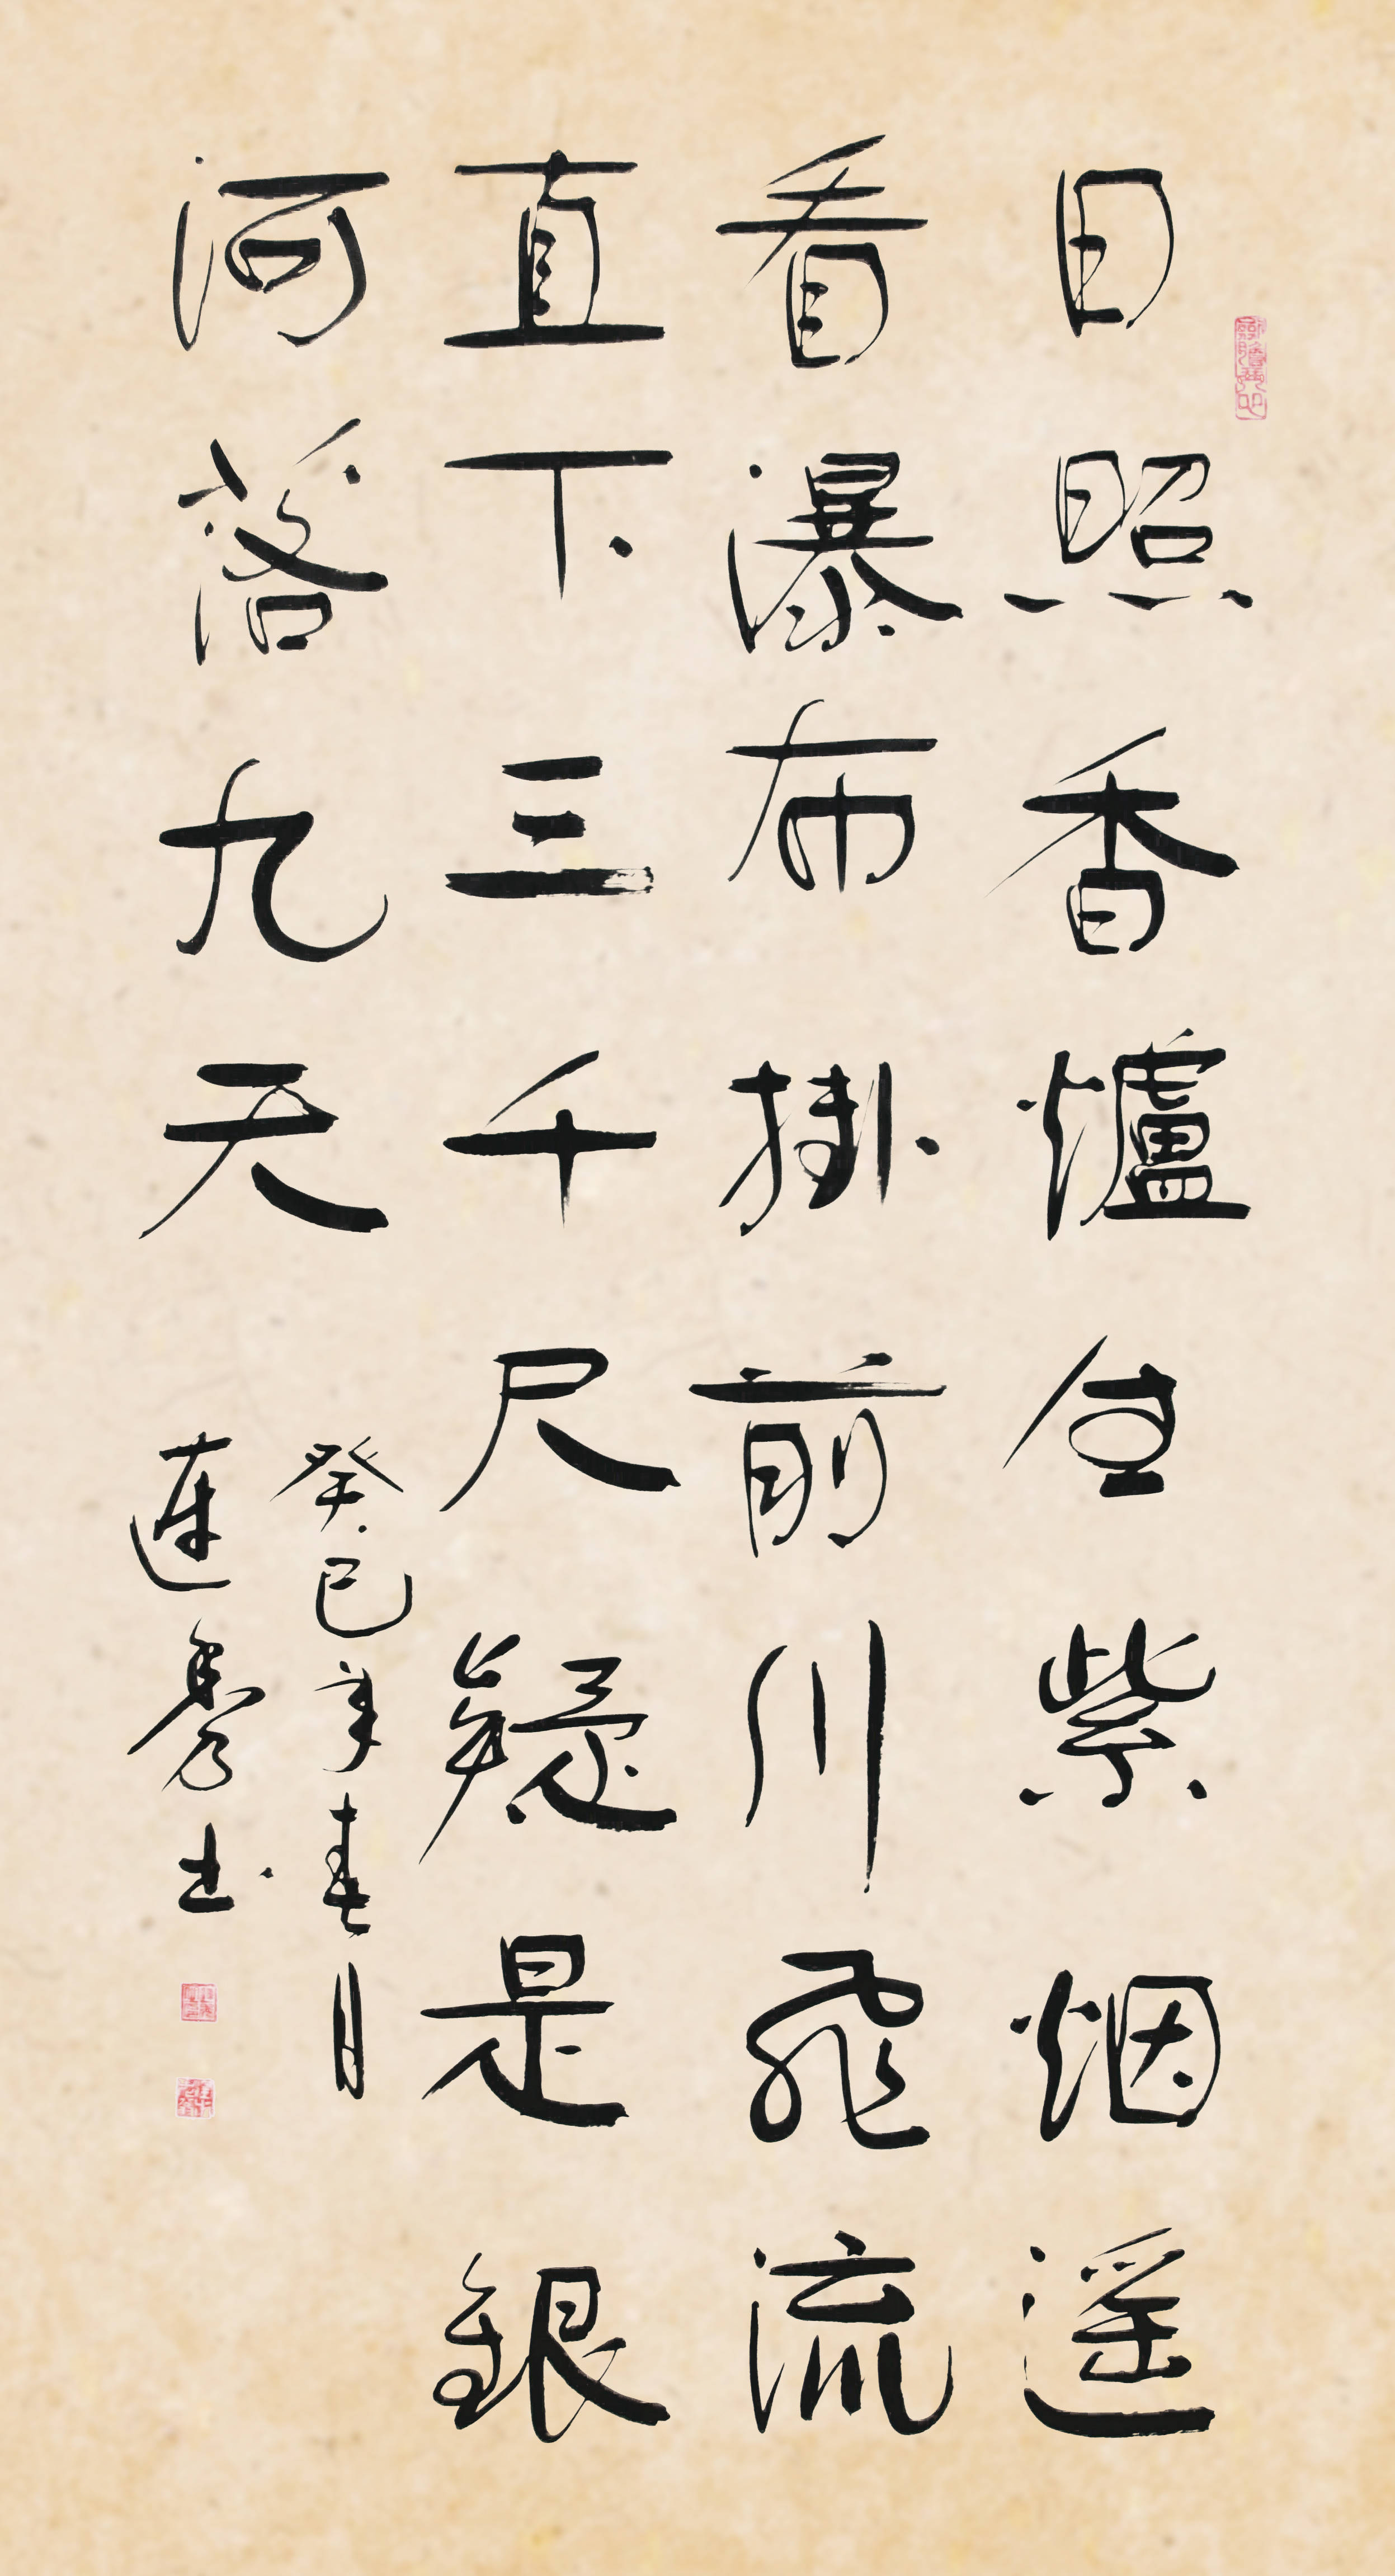 日照香爐生紫烟遥
看瀑布掛前川飛流
直下三千尺疑是銀
河落九天
癸巳年春月
蓮秀书